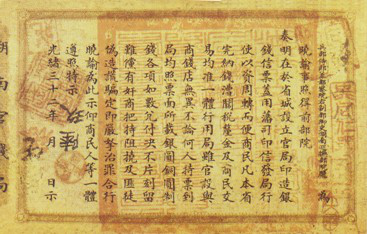 為
曉諭事照得前部院
奏明在於省城設立官局印造銀
錢信票蓋用藩司印信發局行
使以資周轉而便商民凡本省
完納錢漕關稅釐金及商民交
易均准一體行用局雖官設與
商錢店無異不論何人持票到
局均照票面所載銀圓銅圓制
錢各項如數兌付決不片刻留
難倘有奸商把持阻撓及匪徒
偽造撞騙定即嚴拏治罪合行
曉諭為此示仰商民人等一體
遵照特示
光緒三十二年玖月陸日示
湖南官錢局